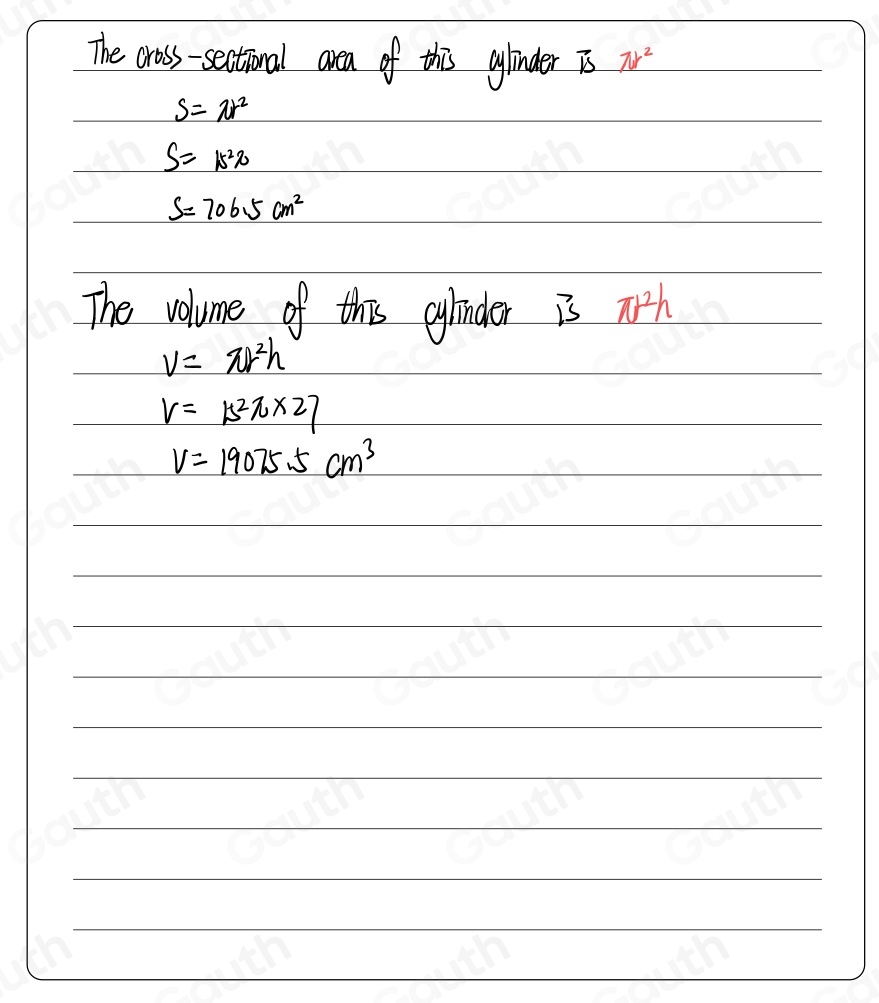 The cross-sectional area of this cylinder is πr²
S= πr²
S= 15²π
S= 706.5 cm²
The volume of this cylinder is πr²h
V= πr²h
V= 15²π×27
V= 19075.5 cm³
Gauth